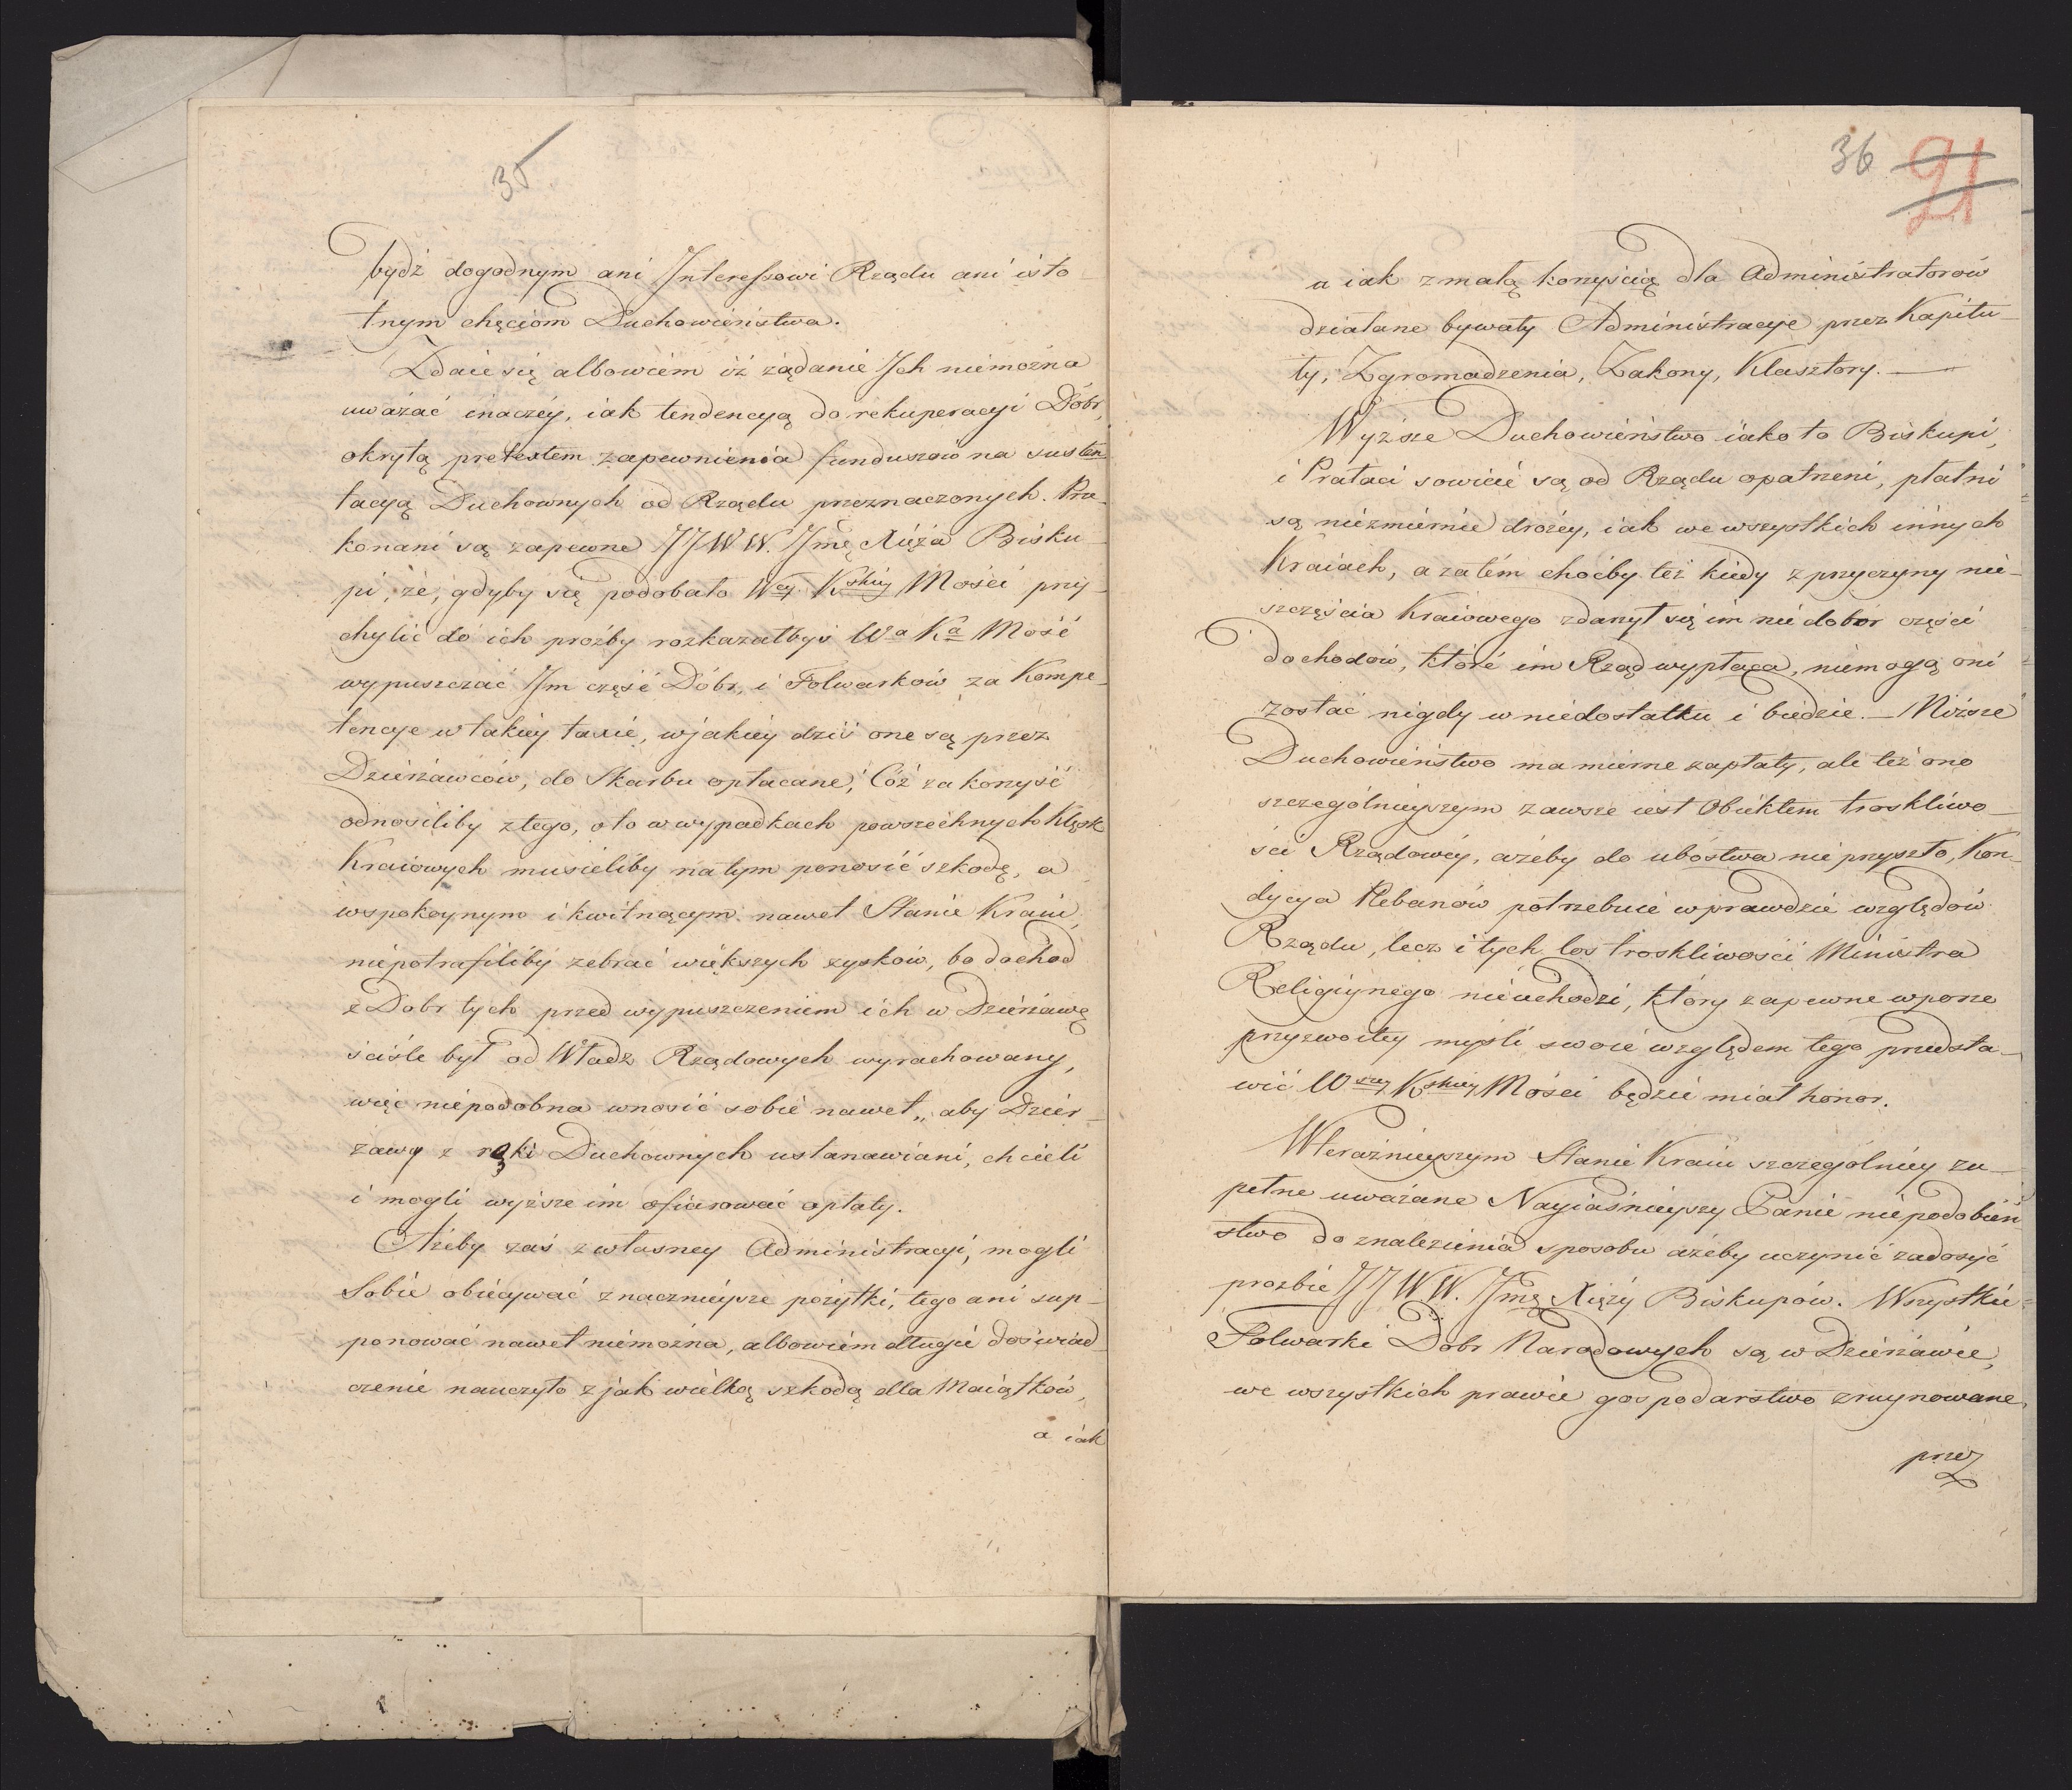 35
bydź dogodnym ani Interessowi Rządu ani isto
tnym chęciom Duchowieństwa.
Zdaie się albowiem iż żądanie Ich niemożna
uważać inaczéy, iak tendencyą do rekuperacyi Dóbr,
okrytą pretextem zapewnienia funduszów na susten
tacyą Duchownych od Rządu przeznaczonych. Prze-
konani są zapewne JJWW. Jmę Xięża Bisku-
pi, że, gdyby się podobało Wey Kskiey Mości przy-
chylić do ich proźby rozkazałbyś Wa Ka Mość
wypuszczać Im część Dóbr, i Folwarków za Kompe-
tencye w takiey taxie, w jakiey dziś one są przez
Dzierżawców, do Skarbu opłacane; Cóż za korzyść
odnosiliby z tego, oto w wypadkach powszechnych Klęsk
Kraiowych musieliby na tym ponosić szkodę, a
w spokoynym i kwitnącym nawet Stanie Kraiu,
niepotrafiliby zebrać większych zysków, bo dochod
z Dobr tych przed wypuszczeniem ich w Dzierżawę
ściśle był od Władz Rządowych wyrachowany,
więc niepodobna wnosić sobie nawet, aby Dzier-
żawcy z ręki Duchownych ustanawiani, chcieli
i mogli wyższe im ofiarować opłaty.
Ażeby zaś z własney Administracyi, mogli
Sobie obiecywać znacznieysze pożytki, tego ani sup-
ponować nawet niemożna, albowiem długie doświad
czenie nauczyło z jak wielką szkodą dla Maiątków,
a iak
36 21
a iak z małą korzyścią dla Administratorów
działane bywały Administracye przez Kapitu-
ły, Zgromadzenia, Zakony, Klasztory. —
Wyższe Duchowieństwo iako to Biskupi,
i Prałaci sowicie są od Rządu opatrzeni, płatni
są niezmiernie drożey, iak we wszystkich innych
Kraiach, a zatém choćby też kiedy z przyczyny nie-
szczęścia Kraiowego zdarzył się im nie dobór części
dochodów, które im Rząd wypłaca, niemogą oni
zostać nigdy w niedostatku i biedzie. — Niższe
Duchowieństwo ma mierne zapłaty, ale też ono
szczególnieyszym zawsze iest Obiektem troskliwo-
ści Rządowéy, ażeby do ubóstwa nie przyszło, Kon-
dycya Plebanów potrzebuie wprawdzie względów
Rządu, lecz i tych los troskliwości Ministra
Religiynego nieuchodzi, który zapewne w porze
przyzwoitey myśli swoie względem tego przedsta-
wić Wszey Kskiey Mości będzie miał honor.
W teraźnieyszym Stanie Kraiu szczególniey zu-
pełne uważane Nayiaśnieyszy Panie niepodobień
stwo do znalezienia sposobu ażeby uczynić zadosyć
prozbie JJWW. Jmę Xięży Biskupów. Wszystkie
Folwarki Dobr Narodowych są w Dzierżawie,
we wszystkich prawie gospodarstwo zruynowane,
przez